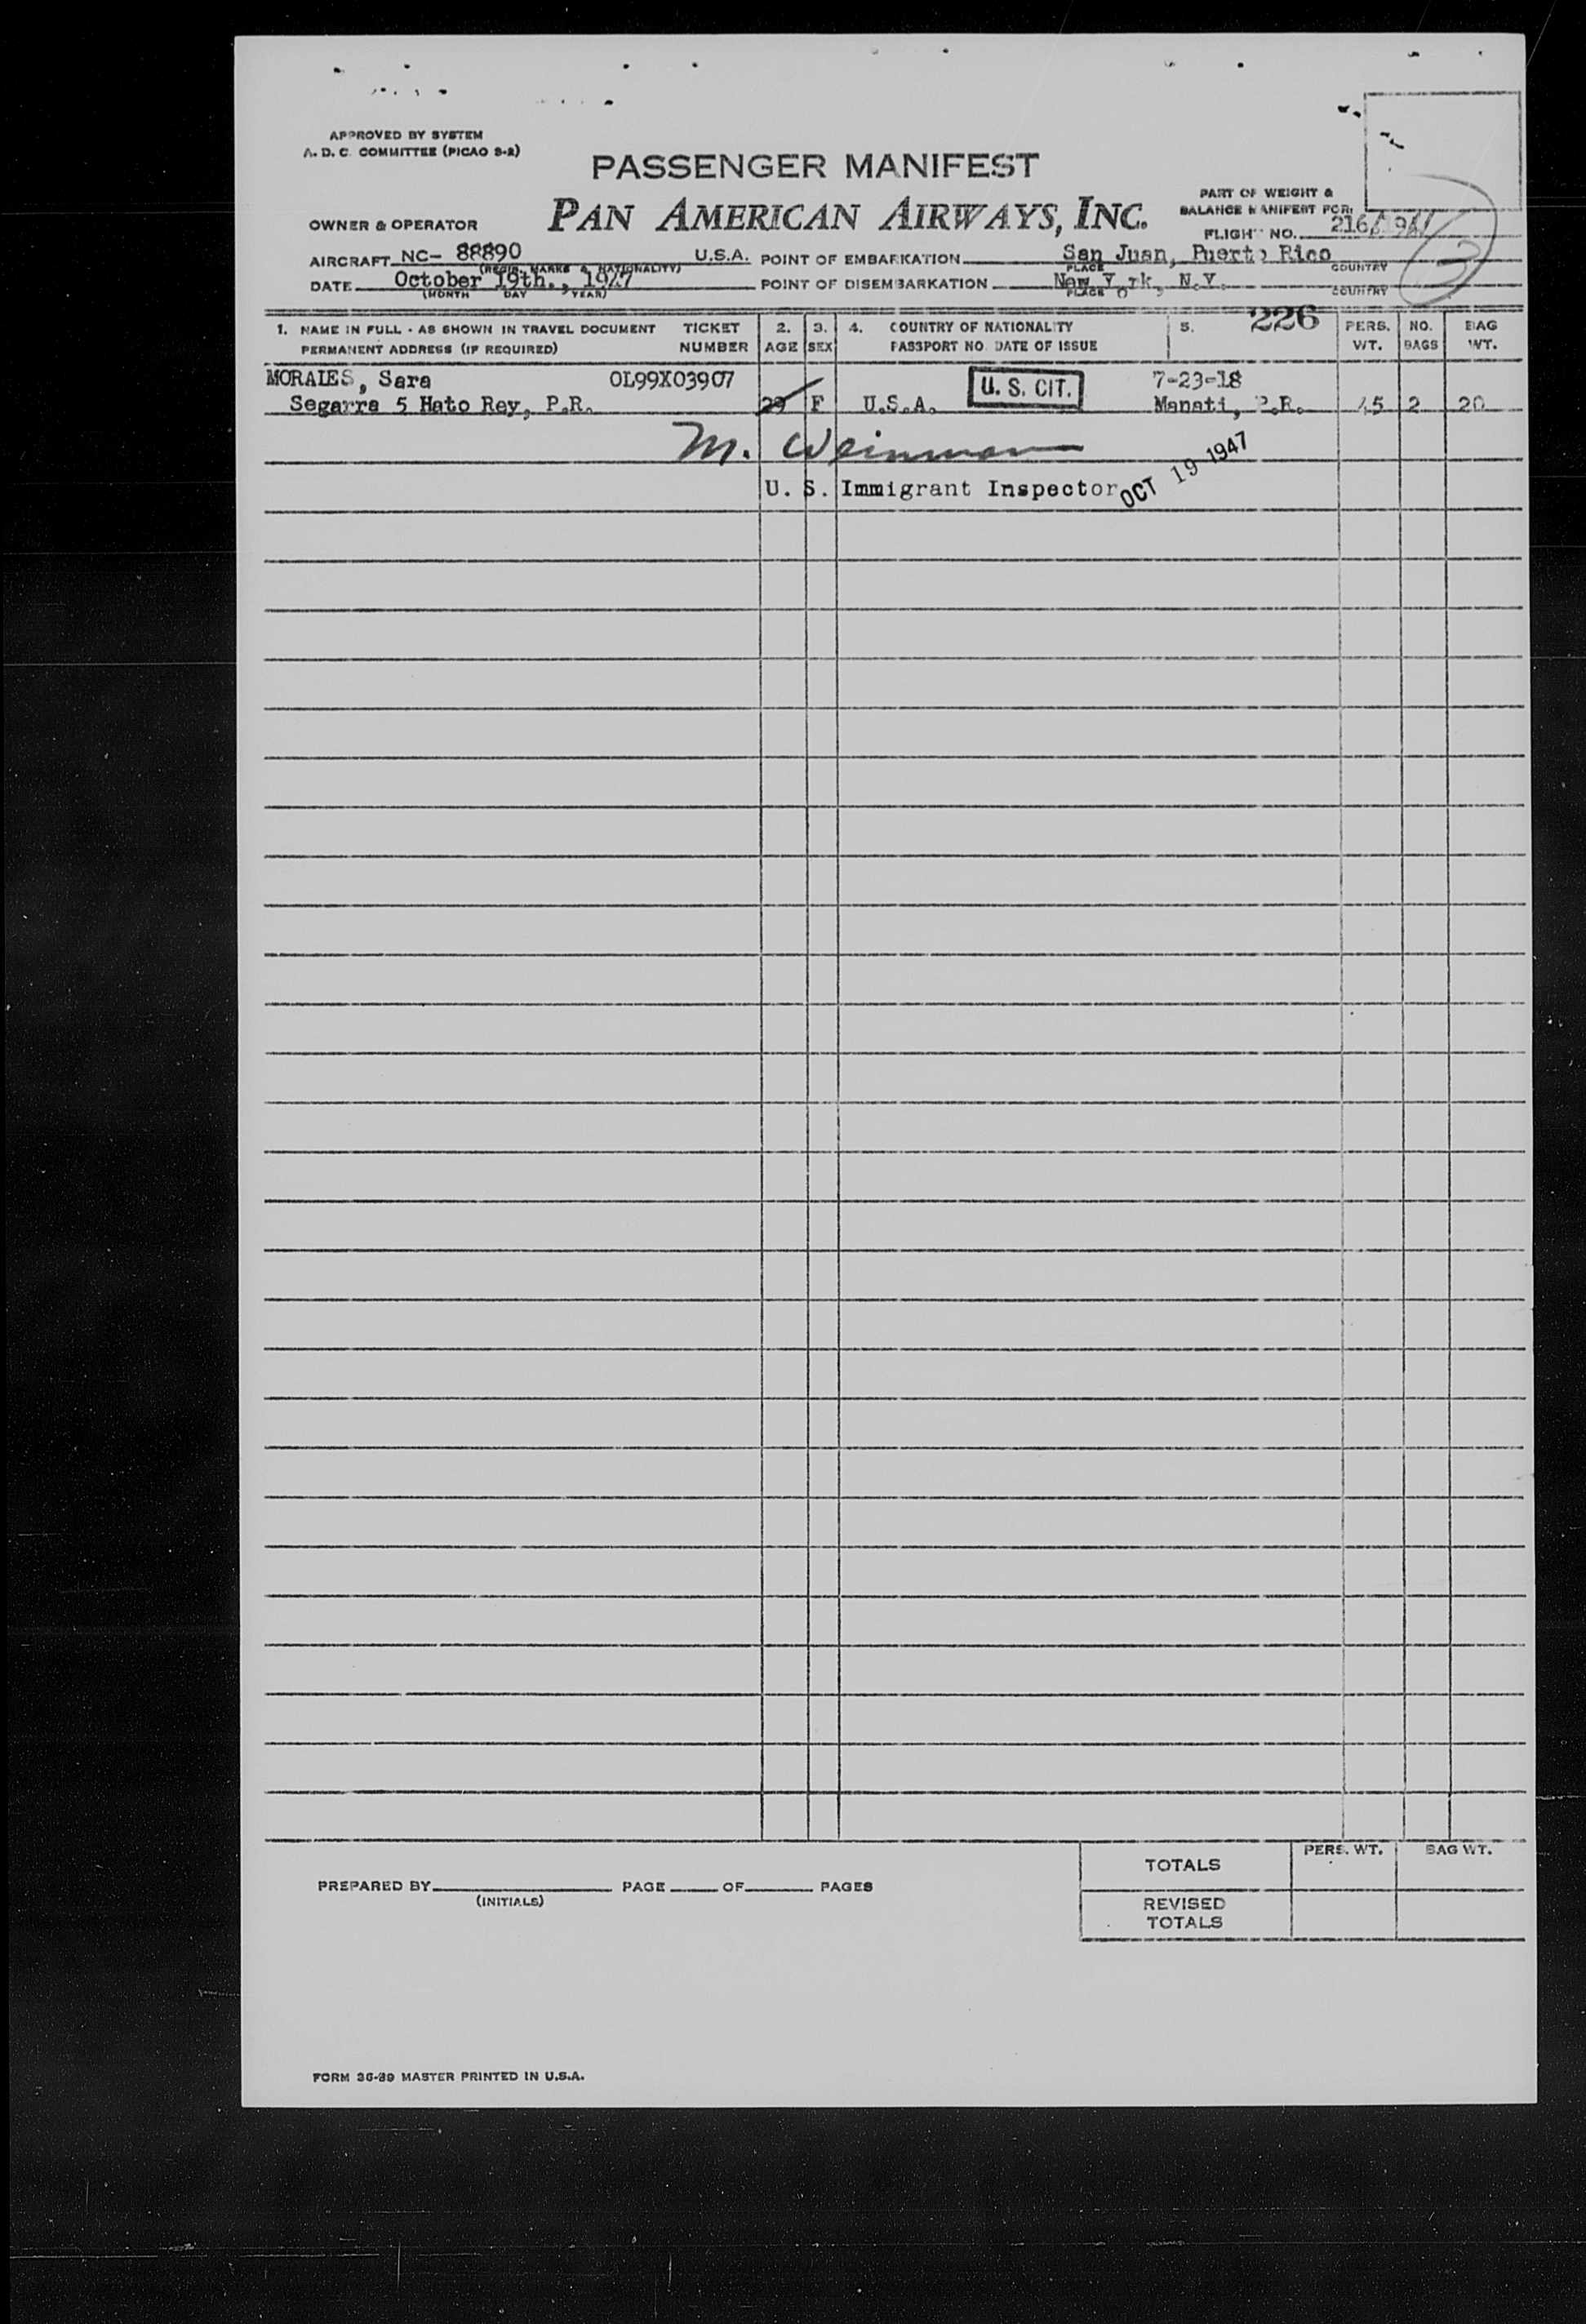 APPROVED BY SYSTEM
A. D. C. COMMITTEE (PICAO S-2)
PASSENGER MANIFEST
PAN AMERICAN AIRWAYS, INC.
PART OF WEIGHT &
BALANCE MANIFEST FOR:
FLIGHT NO. 216/
OWNER & OPERATOR
AIRCRAFT NC- 88890 U.S.A. POINT OF EMBARKATION San Juan, Puerto Rico
(REGIS. MARKS & NATIONALITY) PLACE COUNTRY
DATE October 19th., 1947 POINT OF DISEMBARKATION New York, N.Y.
(MONTH DAY YEAR) PLACE COUNTRY
226
1. NAME IN FULL - AS SHOWN IN TRAVEL DOCUMENT TICKET 2. 3. 4. COUNTRY OF NATIONALITY 5. PERS. NO. BAG
PERMANENT ADDRESS (IF REQUIRED) NUMBER AGE SEX PASSPORT NO. DATE OF ISSUE WT. BAGS WT.
MORALES, Sara OL99X03907 U. S. CIT. 7-23-18
Segarra 5 Hato Rey, P.R. 29 F U.S.A. Manati, P.R. 45 2 20
M. Weinman
U. S. Immigrant Inspector OCT 19 1947
PERS. WT. BAG WT.
TOTALS
PREPARED BY PAGE OF PAGES
(INITIALS)
REVISED
TOTALS
FORM 36-39 MASTER PRINTED IN U.S.A.